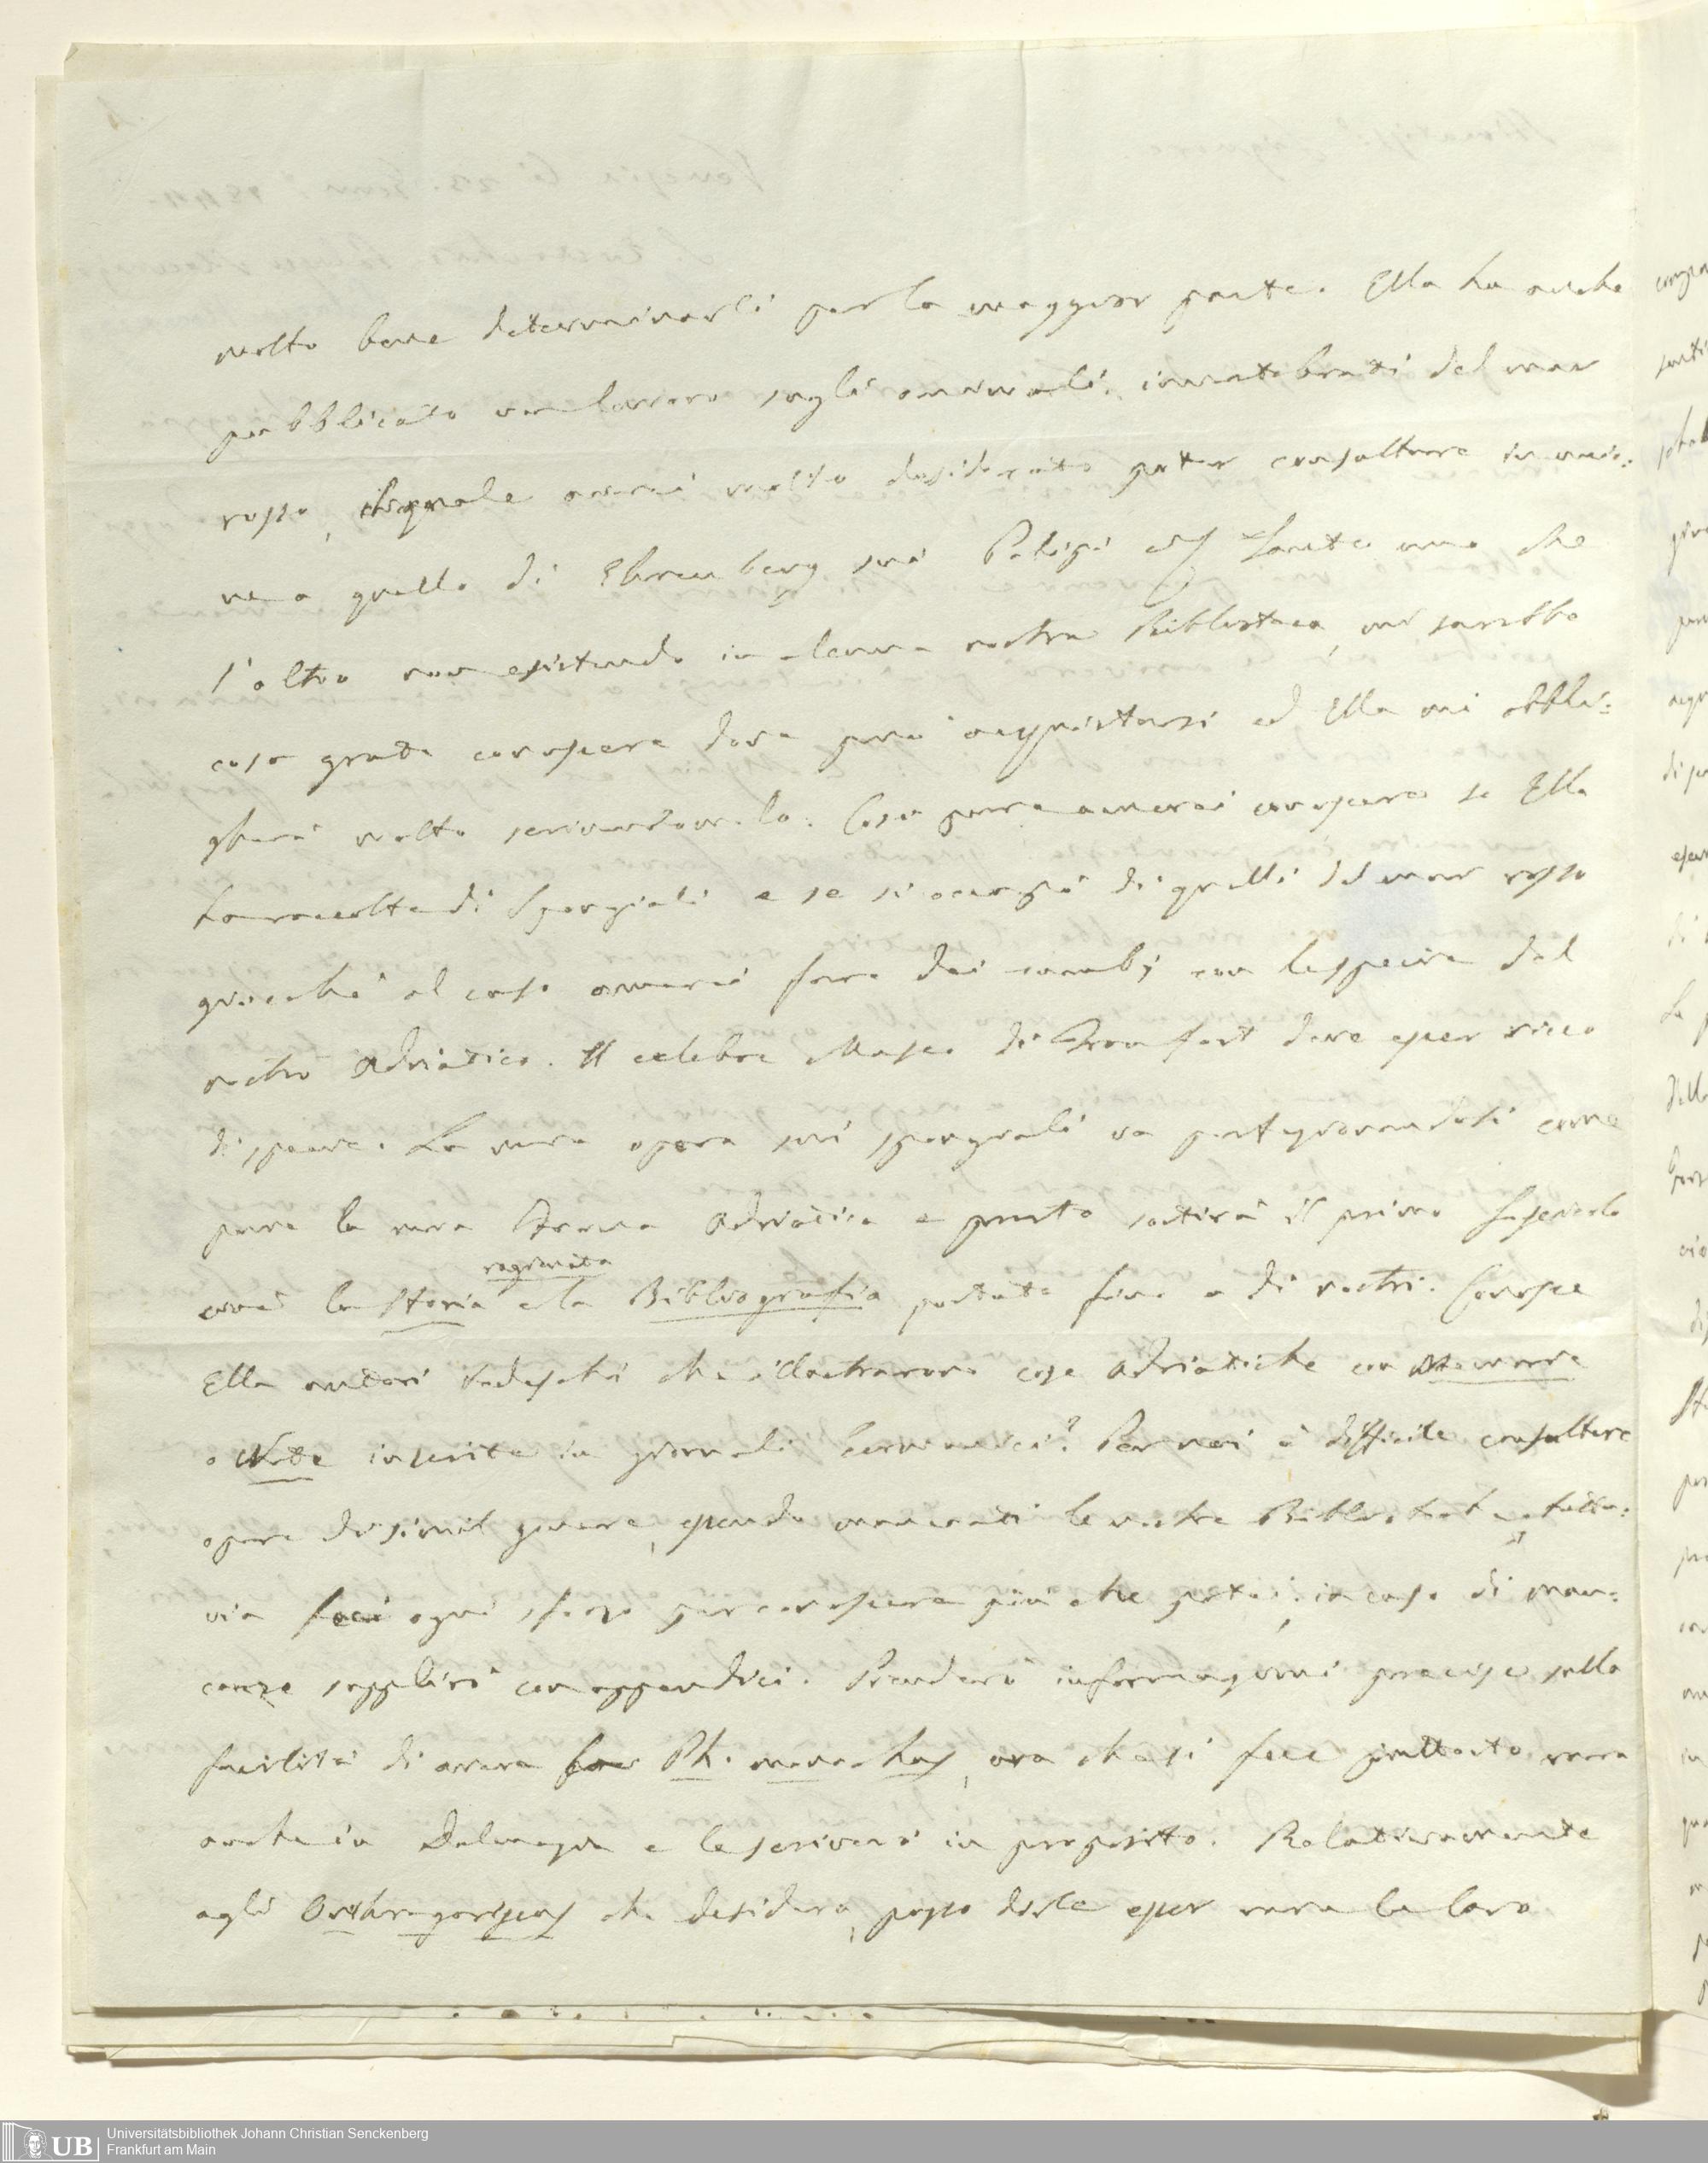 molto bene determinarli per la maggior parte. Ella ha anche
pubblicato un lavoro sugli animali invertebrati del mar
rosso, il quale avrei molto desiderato poter consultare in unio:
ne a quello di Ehrenberg sui Polipi uno che
l'altro non esistendo in alcuna nostra Biblioteca, mi sarebbe
cosa grata conoscere dove puoi acquistarsi ed Ella mi obbli:
gherà molto scrivendomelo. Così pure amerei conoscere se Ella
ha raccolte di Spongiali e se si occupò di quelli del mar rosso
giacchè al caso amerei fare dei cambj con le specie del
nostro Adriatico. Il celebre Museo di Francfort deve esser ricco
di specie. La mia opera sui spongiali va progredendo come
pure la mia Fauna Adriatica e presto sortirà il primo fascicolo
con la Storia ragionata e la Bibliografia portata fino a dì nostri. Conosce
Ella autori tedeschi che illustrarono cose Adriatiche con Memorie
o Note inserite in giornali Germanici? Per noi è difficile consultare
opere di simil genere, essendo mancanti le nostre Biblioteche, tutta:
via feci ogni sforzo per conoscere più che potei; in caso di man:
canze supplirò con appendici. Prenderò informazioni precise sulla
facilità di avere Ph. monachus, ora che si fece piuttosto rara
anche in Dalmazia e le scriverò in proposito. Relativamente
agli Orthragoriscus che desidera, posso dirle esser rara la loro
Universitätsbibliothek Johann Christian Senckenberg
Frankfurt am Main
UB